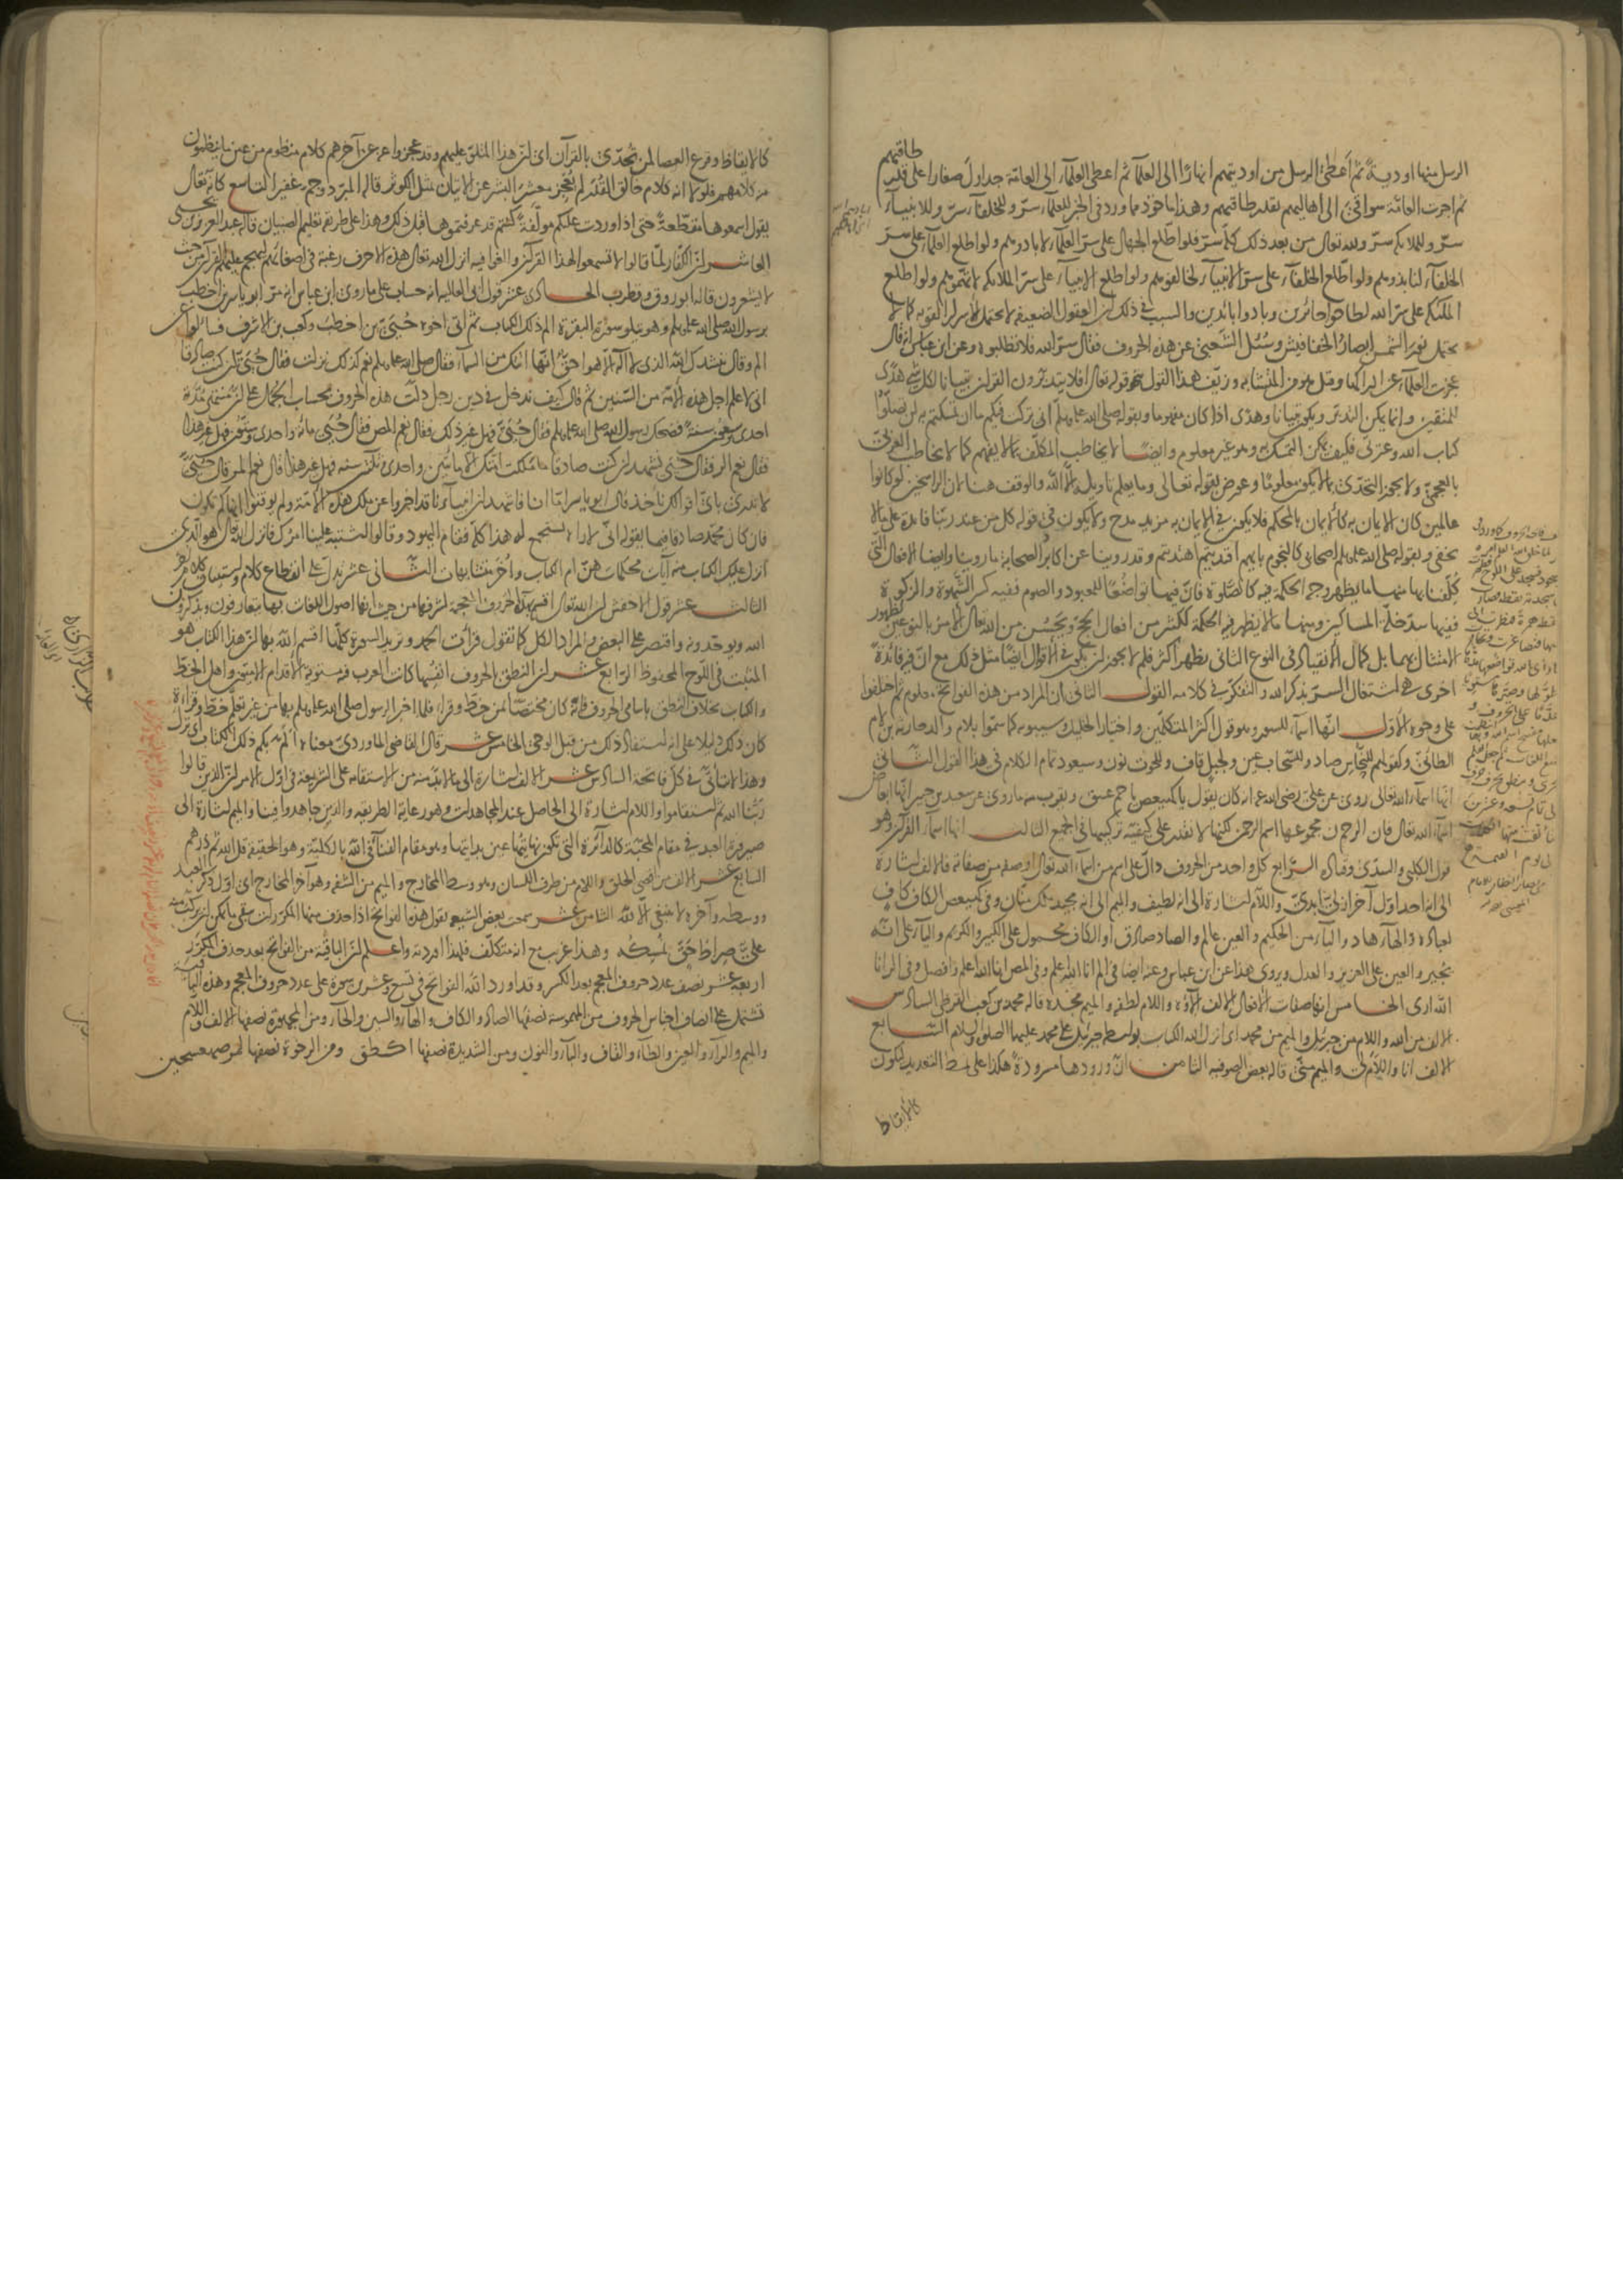 الرسل منها اودية ثم اعطى الرسل من اوديتهم انهارا الى العلماء ثم اعطى العلماء الى العامة جداول صغارا على قدر طاقتهم
ثم اجرت العامة سواقى الى اهاليهم بقدر طاقتهم وهذا ماخوذ مما ورد فى الخبر للعلماء سر وللخلفاء سر وللانبياء
سر وللملائكة سر ولله تعالى من بعد ذلك كله سر فلو اطلع الجهال على سر العلماء لابادوهم ولو اطلع العلماء على سر
الخلفاء لنابذوهم ولو اطلع الخلفاء على سر الانبياء لخالفوهم ولو اطلع الانبياء على سر الملائكة لاتهموهم ولو اطلع
الملئكة على سر الله لطاحوا حائرين وبادوا بائدين والسبب فى ذلك ان العقول الضعيفة لا تحتمل الاسرار القوية كما لا
يحتمل نور الشمس ابصار الخفافيش وسئل الشعبى عن هذه الحروف فقال سر الله فلا تطلبوه وعن ابن عباس انه قال
عجزت العلماء عن ادراكها وقيل هو من المتشابه وزيف هذا القول بنحو قوله تعالى افلا يتدبرون القران تبيانا لكل شئ هدى
للمتقين وانما يمكن التدبر ويكون تبيانا وهدى اذا كان مفهوما وبقوله صلى الله عليه وسلم انى تركت فيكم ما ان تمسكتم به لن تضلوا
كتاب الله وعترتى فكيف يمكن التمسك به وهو غير معلوم وايضا لا يخاطب المكلف بما لا يفهم كما لا يخاطب العربى
بالعجمى ولا يجوز التحدى بما لا يكون معلوما وعورض بقوله تعالى وما يعلم تاويله الا الله والوقف هنا لان الراسخين لو كانوا
عالمين كان الايمان به كالايمان بالمحكم فلا يكون فى الايمان به مزيد مدح ولا يكون فى قوله كل من عند ربنا فائدة على ما لا
يخفى وبقوله صلى الله عليه وسلم اصحابى كالنجوم بايهم اقتديتم اهتديتم وقد روينا عن اكابر الصحابة ما روينا وايضا الافعال التى
كلفنا بها منها ما يظهر وجه الحكمة فيه كالصلوة فان فيها تواضعا للمعبود والصوم ففيه كسر الشهوة والزكوة
ففيها سد خلة المساكين ومنها ما لا يظهر فيه الحكمة لكثير من افعال الحج ويحسن من الله تعالى الامر بالنوعين لظهور
الامتثال بهما بل كمال الانقياد فى النوع الثانى يظهر اكثر فلم لا يجوز ان يكون فى الاقوال ايضا مثل ذلك مع ان فيه فائدة
اخرى هى اشتغال السر بذكر الله والتفكر فى كلامه القول الثانى ان المراد من هذه الفواتح معلوم ثم اختلفوا
على وجوه الاول انها اسماء للسور وهو قول اكثر المتكلمين واختيار الخليل وسيبويه كما سموا بلام والد حارثة بن لام
الطائى وكقولهم للنحاس صاد وللسحاب عين ولجبل قاف وللحوت نون وسيعود تمام الكلام فى هذا القول الثانى
انها اسماء الله تعالى روى عن على رضى الله عنه انه كان يقول يا كهيعص يا حم عسق ويقرب منه ما روى عن سعيد بن جبير انها ابعاض
اسماء الله تعالى فان الر حم ن مجموعها اسم الرحمن لكنها لا نقدر على كيفية تركيبها فى الجميع الثالث انها اسماء القران وهو
قول الكلبى والسدى وقتادة الرابع كل واحد من الحروف دال على اسم من اسماء الله تعالى او صفة من صفاته فالالف اشارة
الى انه احد اول آخر ازلى ابدى واللام اشارة الى انه لطيف والميم الى انه مجيد ملك منان وفى كهيعص الكاف كاف
لعباده والهاء هاد والياء من الحكيم والعين عالم والصاد صادق او الكاف محمول على الكبير والكريم والياء على انه
يجير والعين على العزيز والعدل ويروى هذا عن ابن عباس وعنه ايضا فى الم انا الله اعلم وفى المص انا الله اعلم وافصل وفى الر انا
الله ارى الخامس انها صفات الافعال الالف الاؤه واللام لطفه والميم مجده قاله محمد بن كعب القرظى السادس
الالف من الله واللام من جبرئيل والميم من محمد اى انزل الله الكتاب بواسطة جبرئيل على محمد عليهما الصلوة والسلام السابع
الالف انا واللام لى والميم منى قاله بعض الصوفية الثامن ان ورودها مسرودة هكذا على نمط التعديد ليكون
كالايقاظ
كالايقاظ وقرع العصا لمن تحدى بالقرآن اى ان هذا المتلو عليهم وقد عجزوا عنه عن آخرهم كلام منظوم من عين ما ينظمون
منه كلامهم فلولا انه كلام خالق القدر لم يعجز معشر البشر عن الاتيان بمثل الكوثر قاله المبرد وجم غفير التاسع كانه تعالى
يقول اسمعوها مقطعة حتى اذا وردت عليكم مؤلفة كنتم قد عرفتموها قبل ذلك وهذا على طريق تعليم الصبيان قاله عبد العزيز بن يحيى
العاشر ان الكفار لما قالوا لا تسمعوا لهذا القرآن والغوا فيه انزل الله تعالى هذه الاحرف رغبة فى اصغائهم ليهجم عليهم القرآن من حيث
لا يشعرون قاله ابو روق وقطرب الحادى عشر قول ابى العالية انه حساب على ما روى ابن عباس انه مر ابو ياسر بن اخطب
برسول الله صلى الله عليه وسلم وهو يتلو سورة البقرة الم ذلك الكتاب ثم اتى اخوه حيى بن اخطب وكعب بن الاشرف فسالوه عن
الم وقال ننشدك الله الذى لا اله الا هو احق انها اتتك من السماء فقال صلى الله عليه وسلم نعم كذلك نزلت فقال حيى ان كنت صادقا
انى لاعلم اجل هذه الامة من السنين ثم قال كيف ندخل فى دين رجل دلت هذه الحروف بحساب الجمل على ان منتهى مدة
احدى وسبعون سنة فضحك رسول الله صلى الله عليه وسلم فقال حيى فهل غير ذلك فقال نعم المص فقال حيى مائة واحدى وستون فهل غير هذا
فقال نعم الر فقال حيى نشهد ان كنت صادقا ما ملكت امتك الا مائتين واحدى وثلثين سنة فهل غير هذا قال نعم المر قال حيى
لا ندرى باى اقوالك ناخذ فقال ابو ياسر اما انا فاشهد ان انبياءنا قد اخبروا عن ملك هذه الامة ولم يوقتوا انها كم تكون
فان كان محمد صادقا فيما يقوله انى لاراه سيجمع له هذا كله فقام اليهود وقالوا اشتبه علينا امرك فانزل الله تعالى هو الذى
انزل عليك الكتاب منه آيات محكمات هن ام الكتاب واخر متشابهات الثانى عشر تدل على انقطاع كلام واستيناف كلام آخر
الثالث عشر قول الاخفش ان الله تعالى اقسم بهذه الحروف المعجمة لشرفها من حيث انها اصول اللغات بها يتعارفون ويذكرون
الله ويوحدونه واقتصر على البعض والمراد الكل كما تقول قرات الحمد وتريد السورة كلها اقسم الله بها ان هذا الكتاب هو
المثبت فى اللوح المحفوظ الرابع عشر ان النطق بالحروف انفسها كانت العرب فيه مستوية الاقدام الاميون واهل الخط
والكتاب بخلاف النطق باسامى الحروف فانه كان مختصا بمن خط وقرا فلما اخبر الرسول صلى الله عليه وسلم بها من غير تعلم خط وقراءة
كان ذلك دليلا على انه استفاد ذلك من قبل الوحى الخامس عشر قال القاضى الماوردى معناه الم بكم ذلك الكتاب اى نزل
وهذا لا يتاتى فى كل فاتحة السادس عشر الالف اشارة الى ما لا بد منه من الاستقامة على الشريعة فى اول الامر ان الذين قالوا
ربنا الله ثم استقاموا واللام اشارة الى الحاصل عند المجاهدات وهو رعاية الطريقة والذين جاهدوا فينا والميم اشارة الى
صيرورة العبد فى مقام المحبة كالدائرة التى تكون نهايتها عين بدايتها وهو مقام الفناء فى الله بالكلية وهو الحقيقة قل الله ثم ذرهم
السابع عشر الالف من اقصى الحلق واللام من طرف اللسان وهو وسط المخارج والميم من الشفة وهو آخر المخارج اى اول ذكر العبد
ووسطه وآخره لا ينبغى الا لله الثامن عشر سمعت بعض الشيعة يقول هذه الفواتح اذا حذف منها المكررات يبقى ما يمكن ان يركب منه
على صراط حق نمسكه وهذا غريب مع انه متكلف فلهذا افردته واعلم ان الباقية من الفواتح بعد حذف المكرر
اربعة عشر نصف عدد حروف المعجم بعد الكسر وقد اورد الله الفواتح فى تسع وعشرين سورة على عدد حروف المعجم وهذه الباقية
تشتمل على انصاف اجناس الحروف من المهموسة نصفها الصاد والكاف والهاء والسين والحاء ومن المجهورة نصفها الالف واللام
والميم والراء والعين والطاء والقاف والياء والنون ومن الشديدة نصفها اكطق ومن الرخوة نصفها لمر صعسحين